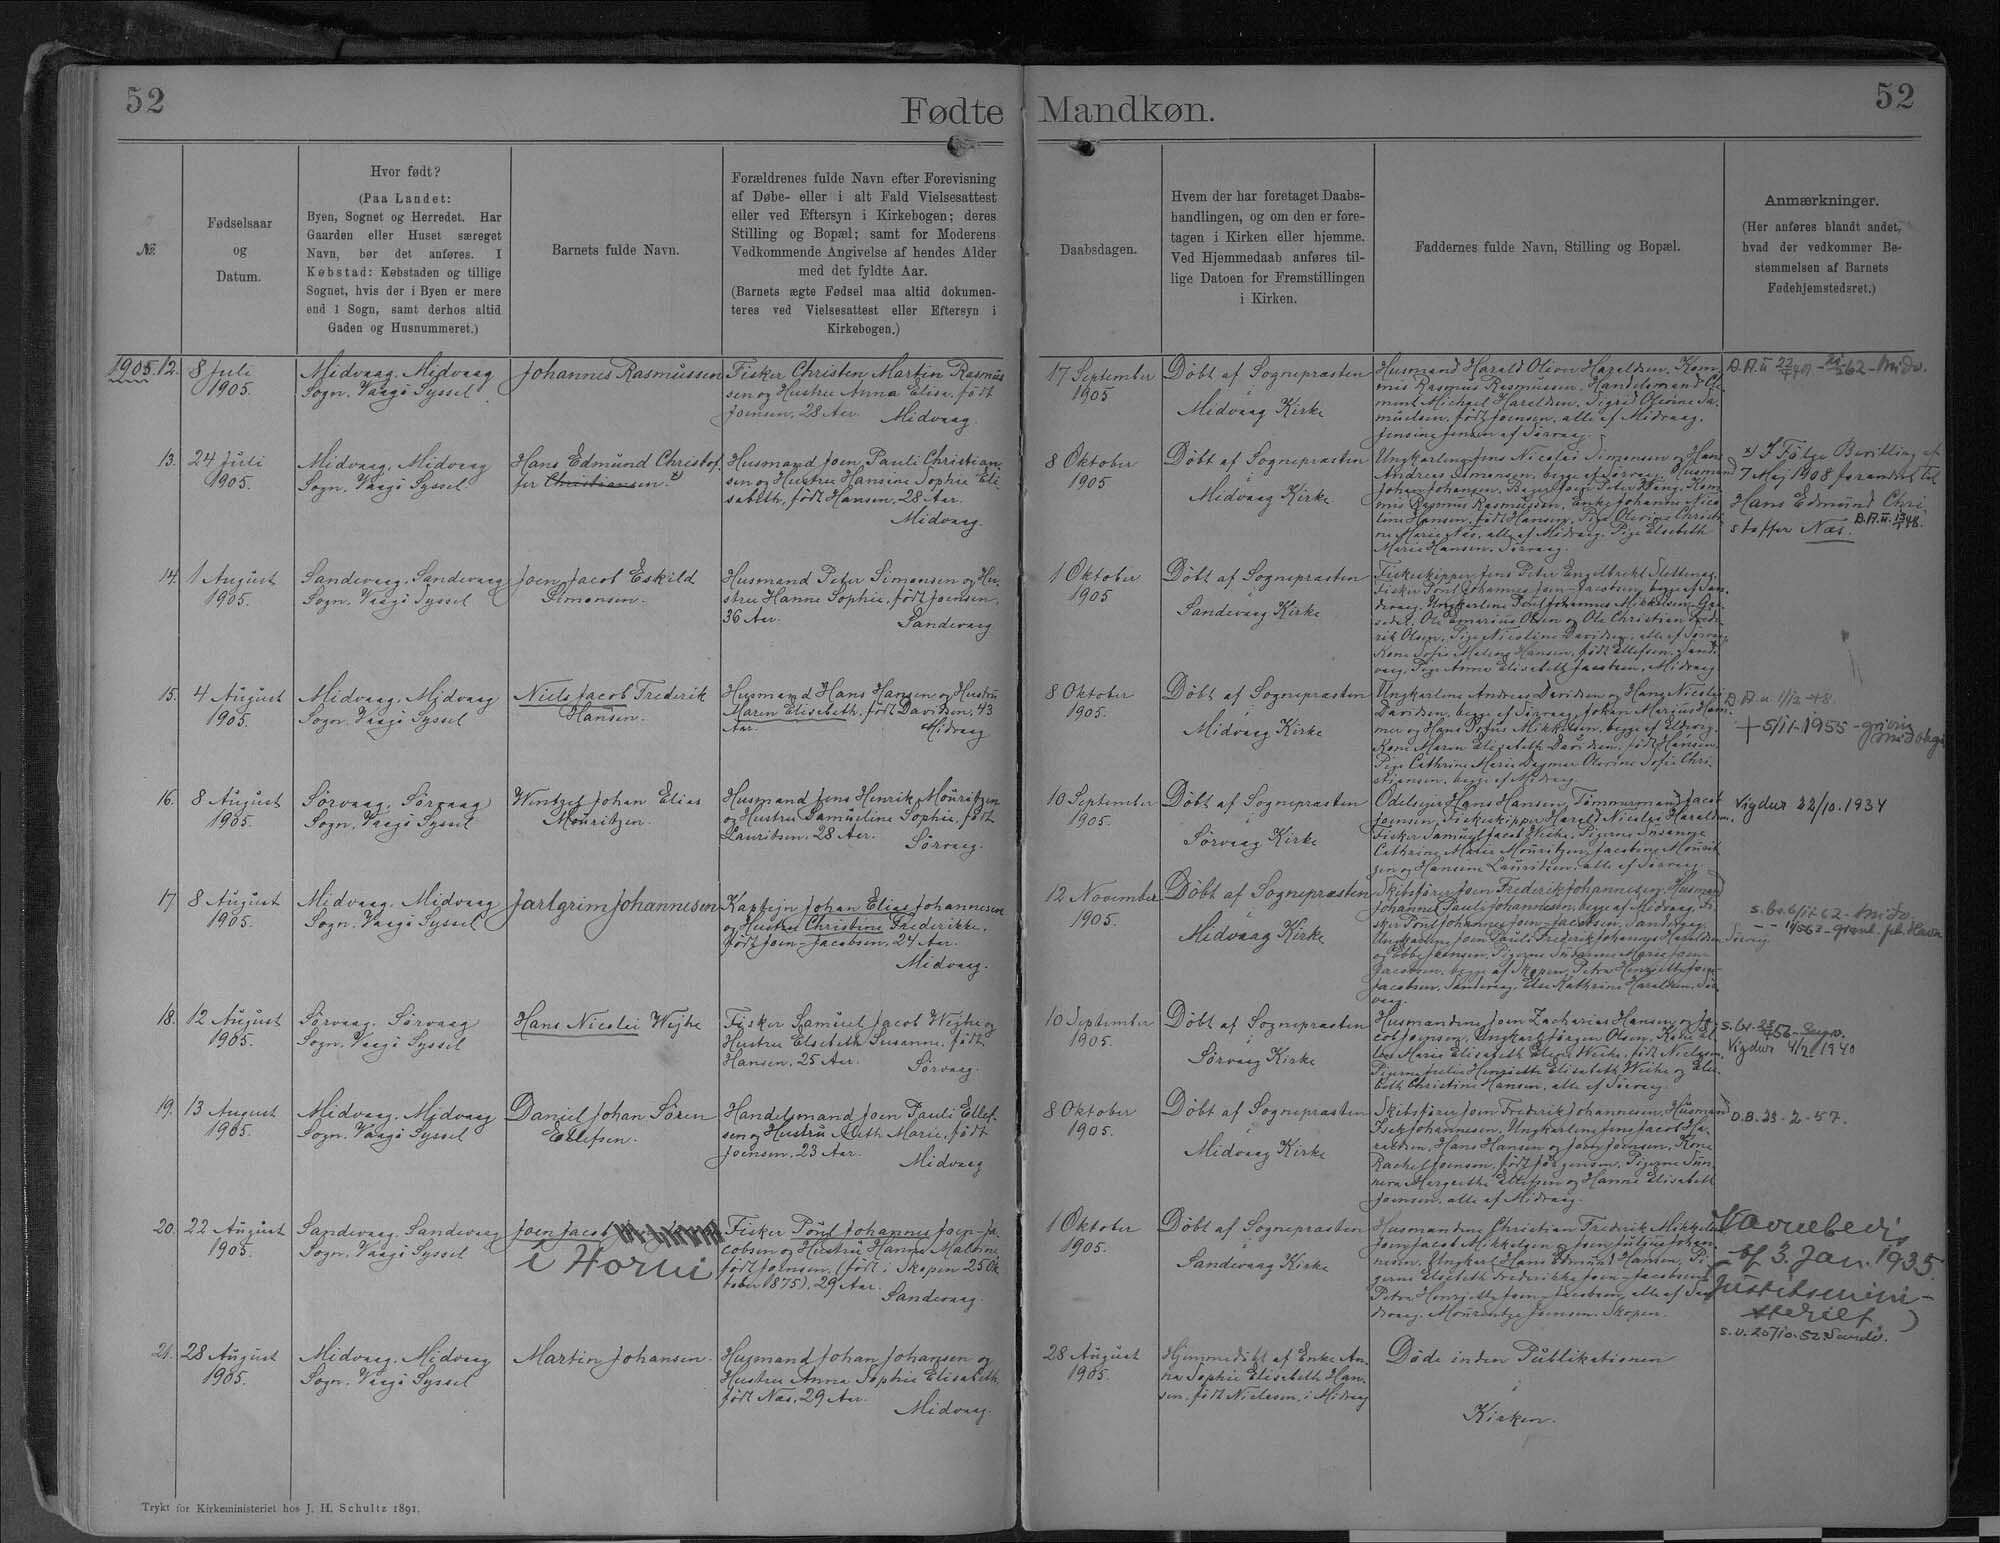 52
Fødte
Mandkøn.
52
№
Fødselsaar
og
Datum.
Hvor født?
(Paa Landet:
Byen, Sognet og Herredet. Har
Gaarden eller Huset særeget
Navn, bør det anføres. I
Købstad: Købstaden og tillige
Sognet, hvis der i Byen er mere
end 1 Sogn, samt derhos altid
Gaden og Husnummeret.)
Barnets fulde Navn.
Forældrenes fulde Navn efter Forevisning
af Døbe- eller i alt Fald Vielsesattest
eller ved Eftersyn i Kirkebogen; deres
Stilling og Bopæl; samt for Moderens
Vedkommende Angivelse af hendes Alder
med det fyldte Aar.
(Barnets ægte Fødsel maa altid dokumen-
teres ved Vielsesattest eller Eftersyn i
Kirkebogen.)
Daabsdagen.
Hvem der har foretaget Daabs-
handlingen, og om den er fore-
tagen i Kirken eller hjemme.
Ved Hjemmedaab anføres til-
lige Datoen for Fremstillingen
i Kirken.
Faddernes fulde Navn, Stilling og Bopæl.
Anmærkninger.
(Her anføres blandt andet,
hvad der vedkommer Be-
stemmelsen af Barnets
Fødehjemstedsret.)
1905. 12.
8 Juli
1905.
Midvaag, Midvaag
Sogn, Vaagø Syssel
Johannes Rasmussen
Fisker Christen Martin Rasmus
sen og Hustru Anna Elise, født
Joensen, 28 Aar.
Midvaag.
17 September
1905
Døbt af Sognepræsten
i
Midvaag Kirke
Husmand Harald Oliver Haraldsen, Kom
mis Rasmus Rasmussen, Handelsmand Cle
ment Michael Haraldsen, Sigrid Olevine Sa-
muelsen, født Joensen, alle af Midvaag.
Jensine Jensen af Sørvaag.
13.
24 Juli
1905.
Midvaag, Midvaag
Sogn, Vaagø Syssel
Hans Edmund Christof-
fer Christiansen.
Husmand Joen Pauli Christian-
sen og Hustru Hansine Sophie Eli-
sabeth, født Hansen, 28 Aar.
Midvaag.
8 Oktober
1905
Døbt af Sognepræsten
i
Midvaag Kirke
Ungkarlene Jens Nicolai Simonsen og Hans
Andreas Simonsen, begge af Sørvaag, Husmand
mis Rasmus Rasmussen, Enke Johanne Nico
line Hansen, født Hansen, Pige Olevine Christi
ne Marie Næs, alle af Midvaag, Pige Elsebeth
Marie Hansen, Sørvaag.
x) I Følge Bevilling af
7 Maj 1908 forandret til
Hans Edmund Chri
stoffer Næs.
14.
1 August
1905.
Sandevaag, Sandevaag
Sogn, Vaagø Syssel
Joen Jacob Eskild
Simonsen.
Husmand Peter Simonsen og Hu-
stru Hanne Sophie, født Joensen,
36 Aar.
Sandevaag
1 Oktober
1905
Døbt af Sognepræsten
i
Sandevaag Kirke
Fiskeskipper Jens Peter Engelbrekt Slettenæs,
Fisker Poul Johannes Joen-Jacobsen, begge af San-
devaag, Ungkarlene Poul Johannes Mikkelsen, Gaa-
rik Olsen, Pige Nicoline Davidsen, alle af Sørvaag
Kone Sofie Malene Hansen, født Ellefsen, Sande
vaag, Pige Anna Elisabeth Jacobsen, Midvaag
15.
4 August
1905.
Midvaag, Midvaag
Sogn, Vaagø Syssel
Niels Jacob Frederik
Hansen.
Husmand Hans Hansen og Hustru
Maren Elisabeth, født Davidsen, 43
Aar.
Midvaag
8 Oktober
1905.
Døbt af Sognepræsten
i
Midvaag Kirke
Ungkarlene Andreas Davidsen og Hans Nicolai
Davidsen, begge af Sørvaag, Johan Marius Ham-
mer og Hans Petur Mikkelsen, begge af Eldevig.
Kone Maren Elisabeth Davidsen, født Hansen.
Pige Cathrine Marie Dagmar Olevine Sofie Chri-
stiansen, begge af Midvaag.
+ 5/11-1955
16.
8 August
1905.
Sørvaag, Sørvaag
Sogn, Vaagø Syssel
Wentzel Johan Elias
Mouritzen.
Husmand Jens Henrik Mouritzen
og Hustru Samueline Sophie, født
Lauritsen, 28 Aar.
Sørvaag.
10 September
1905.
Døbt af Sognepræsten
i
Sørvaag Kirke
Odelsejer Hans Hansen, Tømmermand Jacob
Joensen, Fiskeskipper Harald Nicolai Haraldsen,
Fisker Samuel Jacob Weihe, Pigerne Susanne
Cathrine Marie Mouritzen, Jacobine Mourit
zen og Hansine Lauritsen, alle af Sørvaag.
Vigdur 22/10. 1934
17
8 August
1905.
Midvaag, Midvaag
Sogn, Vaagø Syssel
Jarlgrim Johannesen
Kaptejn Johan Elias Johannesen
og Hustru Christine Frederikke,
født Joen-Jacobsen, 24 Aar.
Midvaag.
12 November
1905.
Døbt af Sognepræsten
i
Midvaag Kirke
Skibsfører Joen Frederik Johannesen, Husmand
Johannes Pauli Johannesen, begge af Midvaag, Fi-
sker Poul Johannes Joen-Jacobsen, Sandevaag.
Ungkarlene Joen Pauli Frederik Johannes Haraldsen, Sørvaag
og Ebbe Joensen, Pigerne Susanne Marie Joen-
Jacobsen, begge af Skopen, Petra Henriette Joen-
Jacobsen, Sandevaag, Else Kathrine Haraldsen, Sør
vaag.
18.
12 August
1905.
Sørvaag, Sørvaag
Sogn, Vaagø Syssel
Hans Nicolai Wejhe
Fisker Samuel Jacob Wejhe og
Hustru Elsebeth Susanne, født
Hansen, 25 Aar.
Sørvaag.
10 September
1905.
Døbt af Sognepræsten
i
Sørvaag Kirke
Husmændene Joen Zacharias Hansen og Ja-
cob Joensen, Ungkarl Jørgen Olsen, Kone El-
len Marie Elisabeth Elene Weihe, født Nielsen,
Pigerne Julie Henriette Elisabeth Weihe og Else-
beth Christine Hansen, alle af Sørvaag.
Vigdur 4/2 1940
19.
13 August
1905.
Midvaag, Midvaag
Sogn, Vaagø Syssel
Daniel Johan Sören
Ellefsen.
Handelsmand Joen Pauli Ellef-
sen og Hustru Anth Marie, født
Joensen, 23 Aar.
Midvaag
8 Oktober
1905.
Døbt af Sognepræsten
i
Midvaag Kirke
Skibsfører Joen Frederik Johannesen, Husmand
Isek Johannesen, Ungkarlene Jens Jacob Ha-
raldsen, Hans Hansen og Joen Joensen, Kone
Rachel Joensen, født Jørgensen, Pigerne Sun-
neva Margrethe Ellefsen og Hanne Elisabeth
Joensen, alle af Midvaag.
D.B. 23-2-57.
20.
22 August
1905.
Sandevaag, Sandevaag
Sogn, Vaagø Syssel
Joen Jacob
í Horni
Fisker Poul Johannes Joen-Ja-
cobsen og Hustru Hanne Malene,
født Joensen, (født i Skopen 25 Ok
tober 1875), 29 Aar.
Sandevaag.
1 Oktober
1905.
Døbt af Sognepræsten
i
Sandevaag Kirke
Husmændene Christian Frederik Mikkelsen
Joen Jacob Mikkelsen og Joen Julius Johan-
nesen, Ungkarl Hans Edmund Hansen, Pi-
gerne Elsebeth Frederikke Joen-Jacobsen,
Petra Henriette Joen-Jacobsen, alle af San
devaag, Mourentze Joensen, Skopen.
Navnebevis
af 3. Jan. 1935.
Justitsmini-
steriet)
s.v. 20/10-52 Sandv.
21.
28 August
1905.
Midvaag, Midvaag
Sogn, Vaagø Syssel
Martin Johansen.
Husmand Johan Johansen og
Hustru Anna Sophie Elisabeth,
født Næs, 29 Aar.
Midvaag.
28 August
1905.
Hjemmedøbt af Enke An-
na Sophie Elisabeth Han-
sen, født Nielsen, i Midvaag
Døde inden Publikationen
i
Kirken.
Trykt for Kirkeministeriet hos J. H. Schultz 1891.